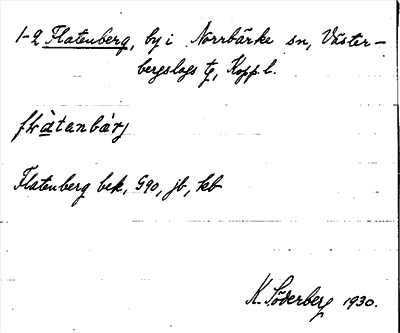 1-2 Flatenberg, by i Norrbärke sn, Väster-
bergslags tg, Kopp. l.
flàtanbárj
Flatenberg bek, G90, jb, kb
K. Söderberg 1930.